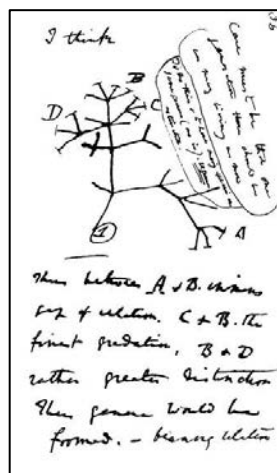 36
I think
Case must be that one
generation then should be
as many living as now
To do this & to have many species in
same genus (as is). requires
extinction
B
D
C
A
1
Thus between A & B. immense
gap of relation. C & B. the
finest gradation, B & D
rather greater distinction
Thus genera would be
formed. — bearing relation